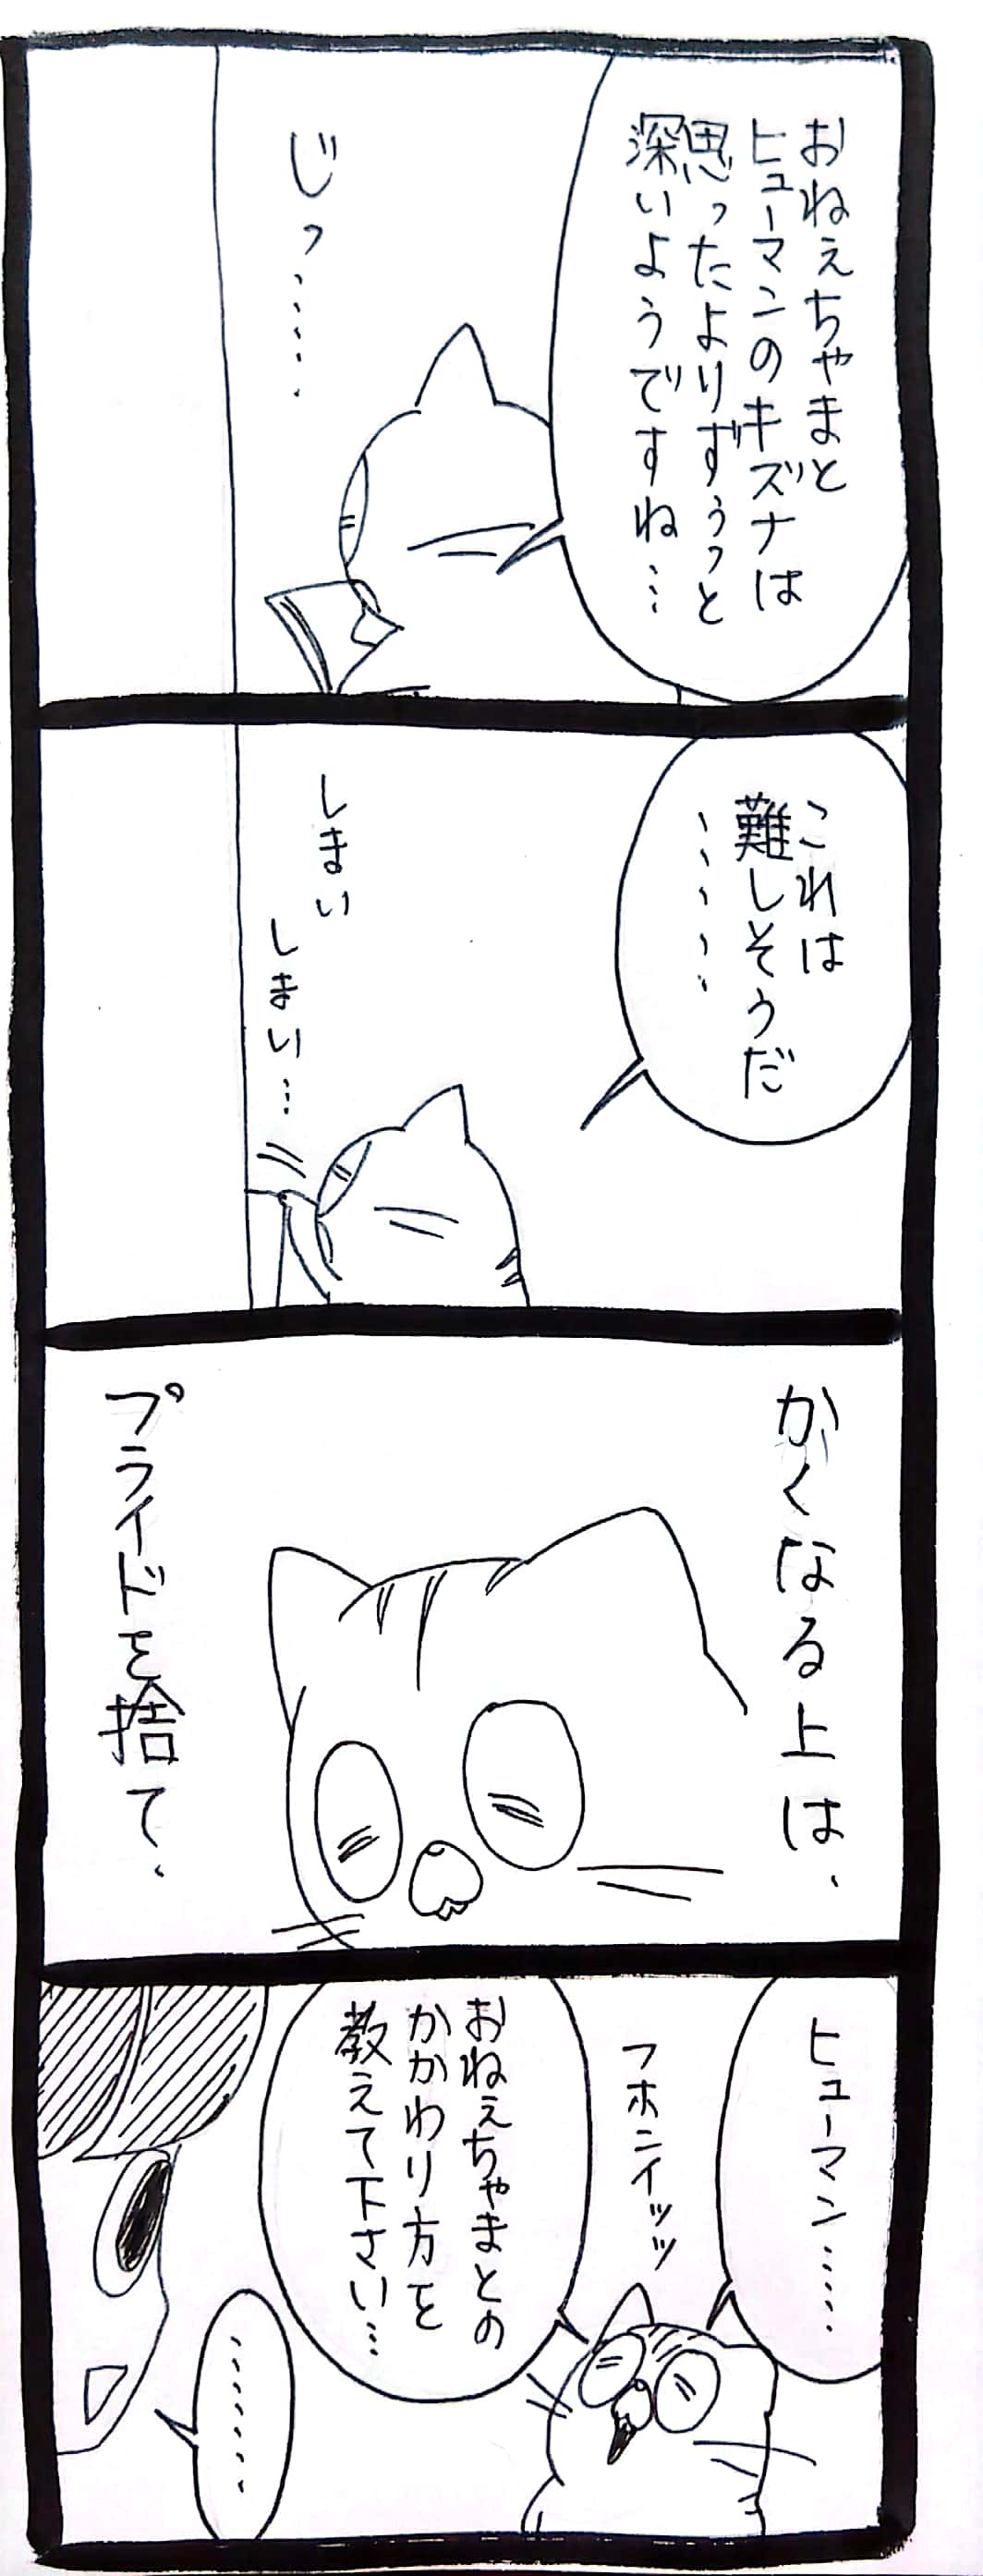 おねぇちゃまと
ヒューマンのキズナは
思ったよりずぅっと
深いようですね…
じっ……
これは
難しそうだ
、、、、、
しまい
しまい…
かくなる上は、
プライドを捨て、
ヒューマン……
フホニイッッ
おねぇちゃまとの
かかわり方を
教えて下さい…
………